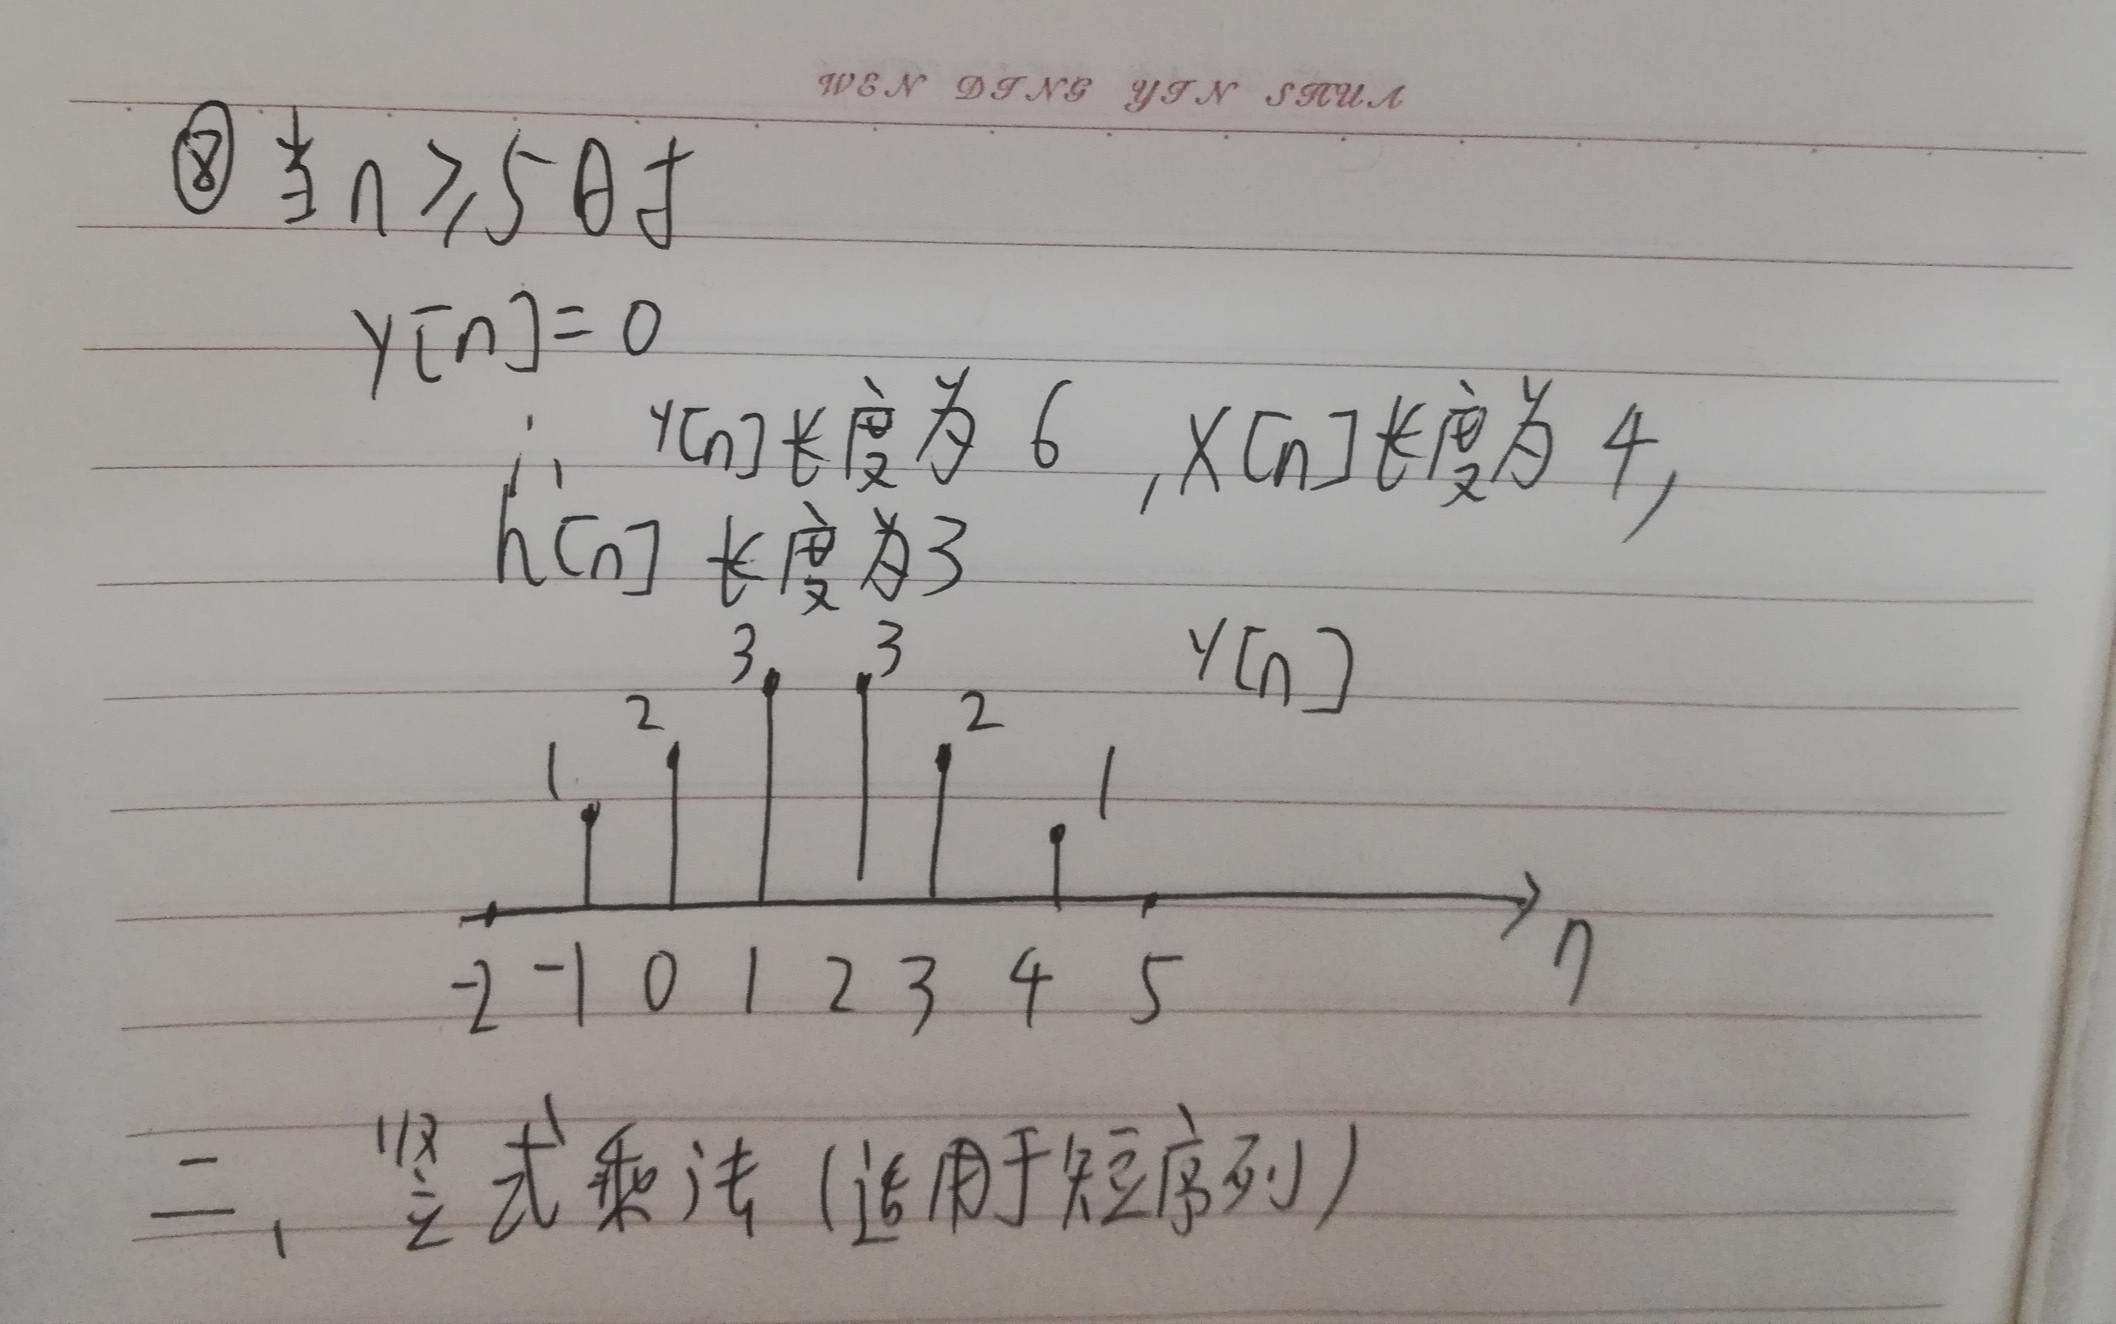 WEN DING YIN SHUA
⑧ 当n≥5时
y[n]=0
∴ y[n]长度为6,x[n]长度为4,
h[n]长度为3
1 2 3 3 2 1 y[n]
-2 -1 0 1 2 3 4 5 n
二、竖式乘法(适用于短序列)